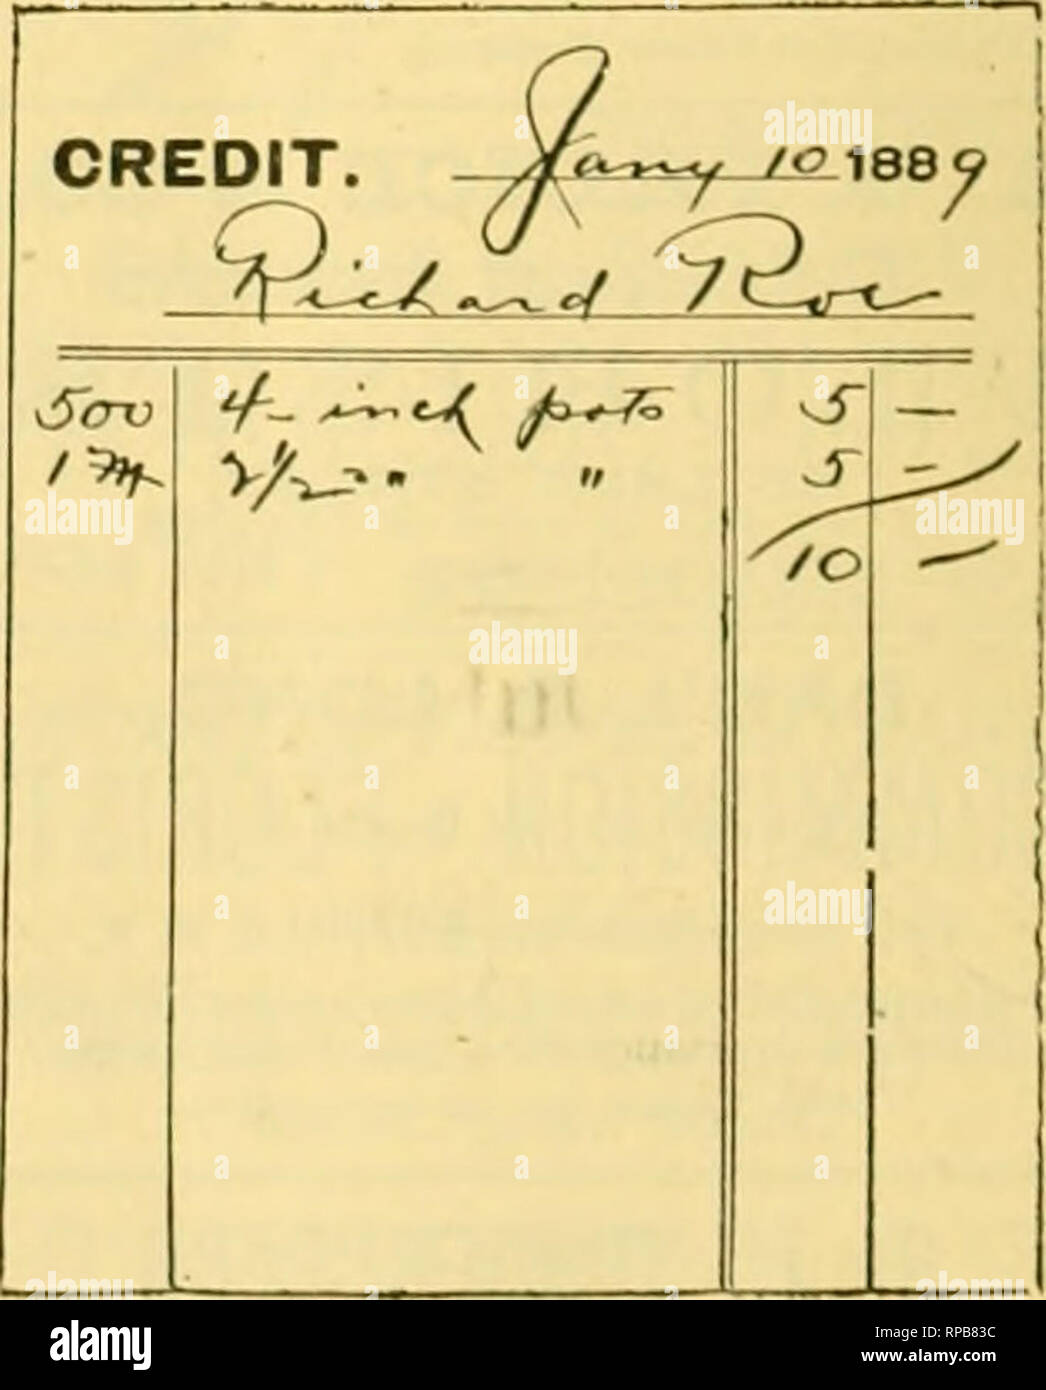 CREDIT. Jany 10 1889
Richard Roe
500 4-inch pots 5 —
1M 2 1/2- " " 5 —
10 —
alamy
Image ID: RPB83C
www.alamy.com